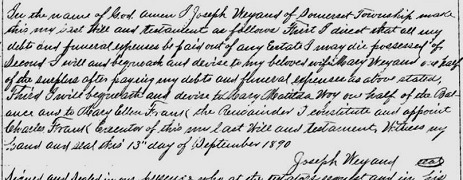 In the name of God, amen I Joseph Weyand of Somerset Township make
this my last Will and testament as follows First I direct that all my
debts and funeral expenses be paid out of any Estate I may die possessed of
Second I will and bequeath and devise to my beloved wife Mary Weyand one half
of the surplus after paying my debts and funeral expenses as above stated,
Third I will bequeath and devise to Mary Matilda Woy one half of the Bal
ance and to Mary Ellen Frank the Remainder I constitute and appoint
Charles Frank Executor of this my Last Will and Testament, Witness my
hand and seal this 13th day of September 1890
Joseph Weyand
Signed and sealed in our presence who at the request and in his